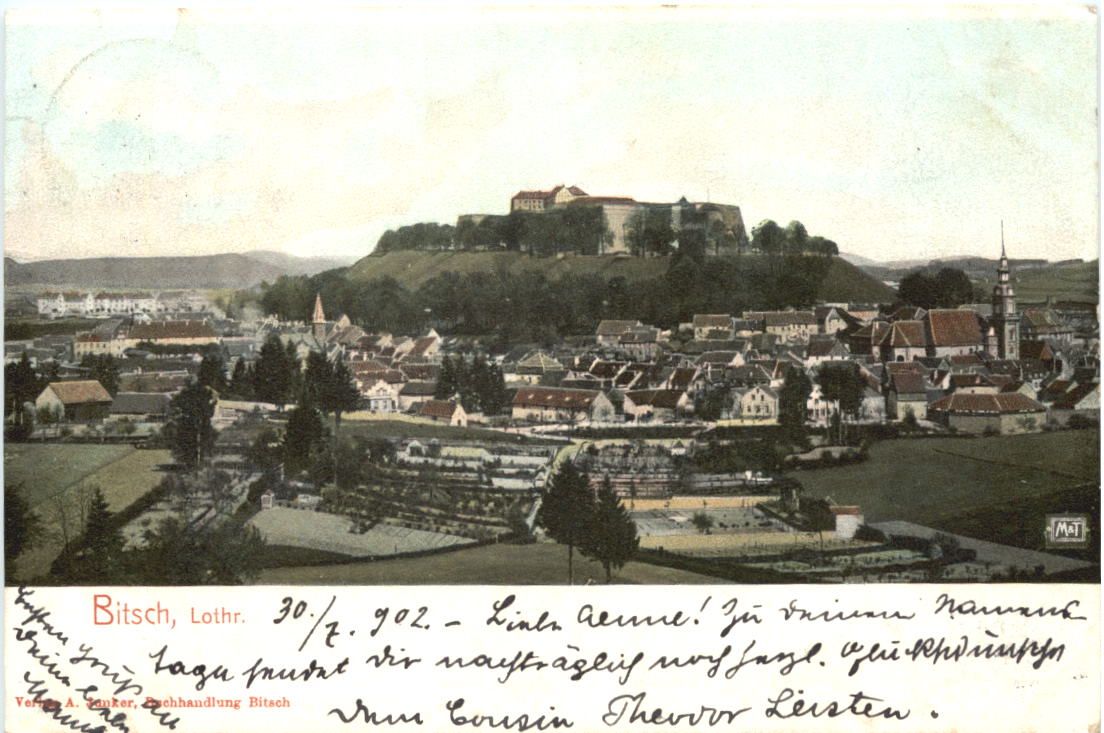 M&T
Bitsch, Lothr.
30./7. 902. – Liebe Aenne! Zu deinem Namens-
tage sendet dir nachträglich noch herzl. Glückwünsche
dein Cousin Theodor Leisten.
Besten Gruß an
deine liebe
Mama
Verlag A. Junker, Buchhandlung Bitsch